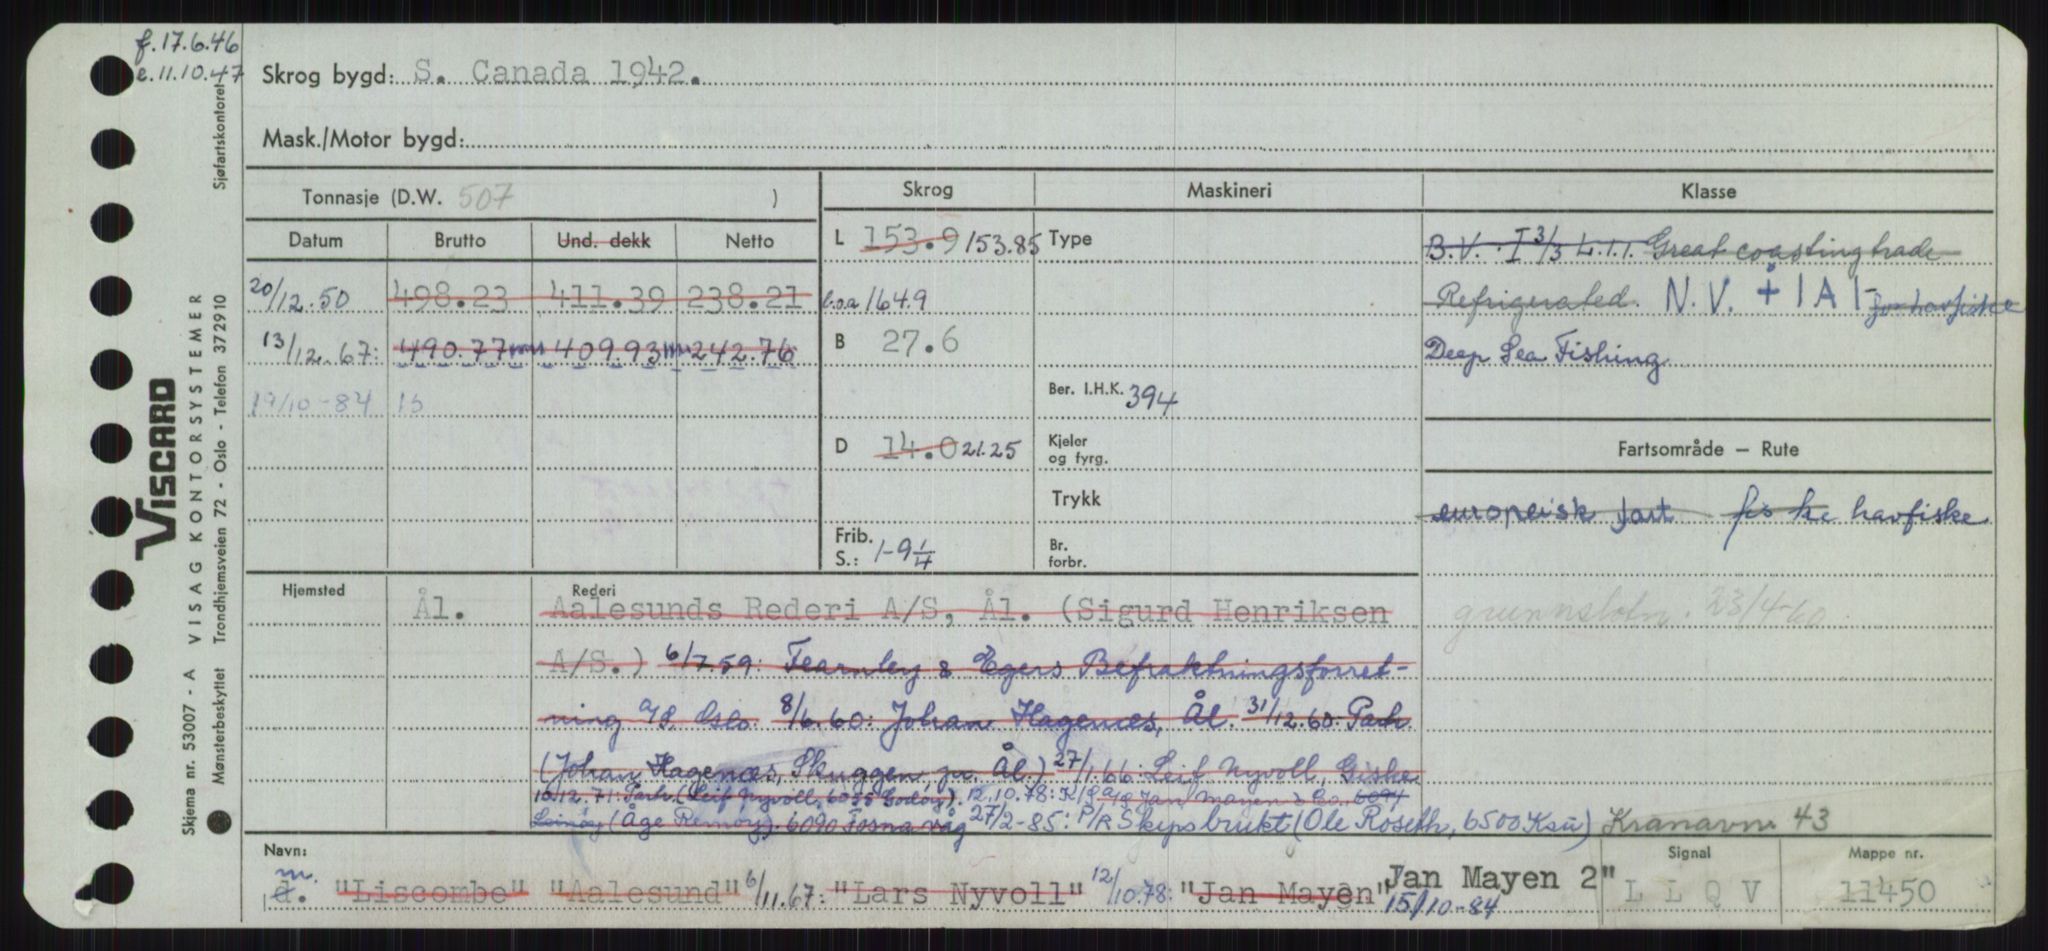 f. 17.6.46
e. 11.10.47
Skrog bygd: S. Canada 1942.
Mask./Motor bygd:
Tonnasje (D.W. 507 )
Datum Brutto Und. dekk Netto
20/12.50 498.23 411.39 238.21
13/12.67: 490.77 409.93 242.76
19/10-84 15
Skrog
L 153.9 153.85
l.o.a 164.9
B 27.6
D 14.0 21.25
Frib.
S.: 1-9 1/4
Maskineri
Type
Ber. I.H.K. 394
Kjeler
og fyrg.
Trykk
Br.
forbr.
Klasse
B.V. I 3/3 L.1.1. Great coasting trade
Refrigerated. N.V. + 1A1- for havfiske
Deep Sea Fishing
Fartsområde – Rute
europeisk fart fiske havfiske
23/4-60
Hjemsted Ål.
Rederi
Aalesunds Rederi A/S, Ål. (Sigurd Henriksen
A/S.) 6/7.59: Fearnley & Egers Befraktningsforret-
ning A/S. Oslo. 8/6.60: Johan Hagenæs, Ål. 31/12.60: Partr.
(Johan Hagenæs, Skuggen, pr. Ål.) 27/1.66: Leif Nyvoll, Giske
10.12.71: Partr. (Leif Nyvoll, 6055 Godøy). 12.10.78: K/S A/S Jan Mayen & Co., 6094
Leinøy (Åge Remøy). 6090 Fosnavåg 27/2-85: P/R Skipsbrukt (Ole Roseth, 6500 Ksu) Kranavn. 43
Navn:
m.
d. "Liscombe" "Aalesund" 6/11.67: "Lars Nyvoll" 12/10.78: "Jan Mayen" Jan Mayen 2"
15/10-84
Signal
L L Q V
Mappe nr.
11450
VISCARD
VISAG KONTORSYSTEMER
Skjema nr. 53007 - A
Mønsterbeskyttet Trondhjemsveien 72 - Oslo - Telefon 372910 Sjøfartskontoret